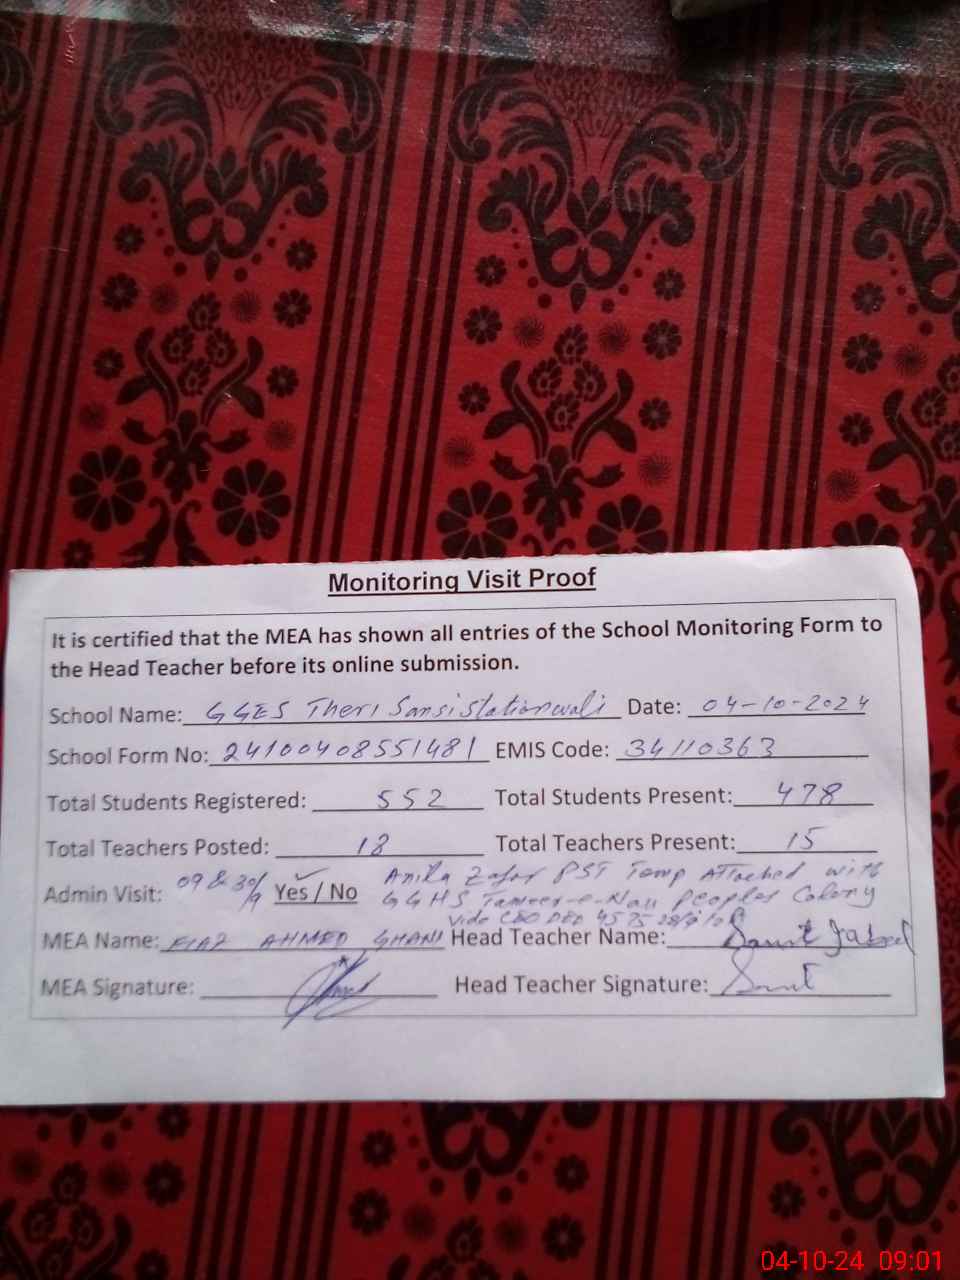 Monitoring Visit Proof
It is certified that the MEA has shown all entries of the School Monitoring Form to
the Head Teacher before its online submission.
School Name: GGES Theri Sansi Stationwali Date: 04-10-2024
School Form No: 24100408551481 EMIS Code: 34110363
Total Students Registered: 552 Total Students Present: 478
Total Teachers Posted: 18 Total Teachers Present: 15
Admin Visit: 09 & 30/9 Yes / No Anila Zafar PST Temp Attached with
GGHS Tameer-e-Nau Peoples Colony
Vide CEO DEO
MEA Name: FIAZ AHMED GHANI Head Teacher Name:
MEA Signature: Head Teacher Signature:
04-10-24 09:01